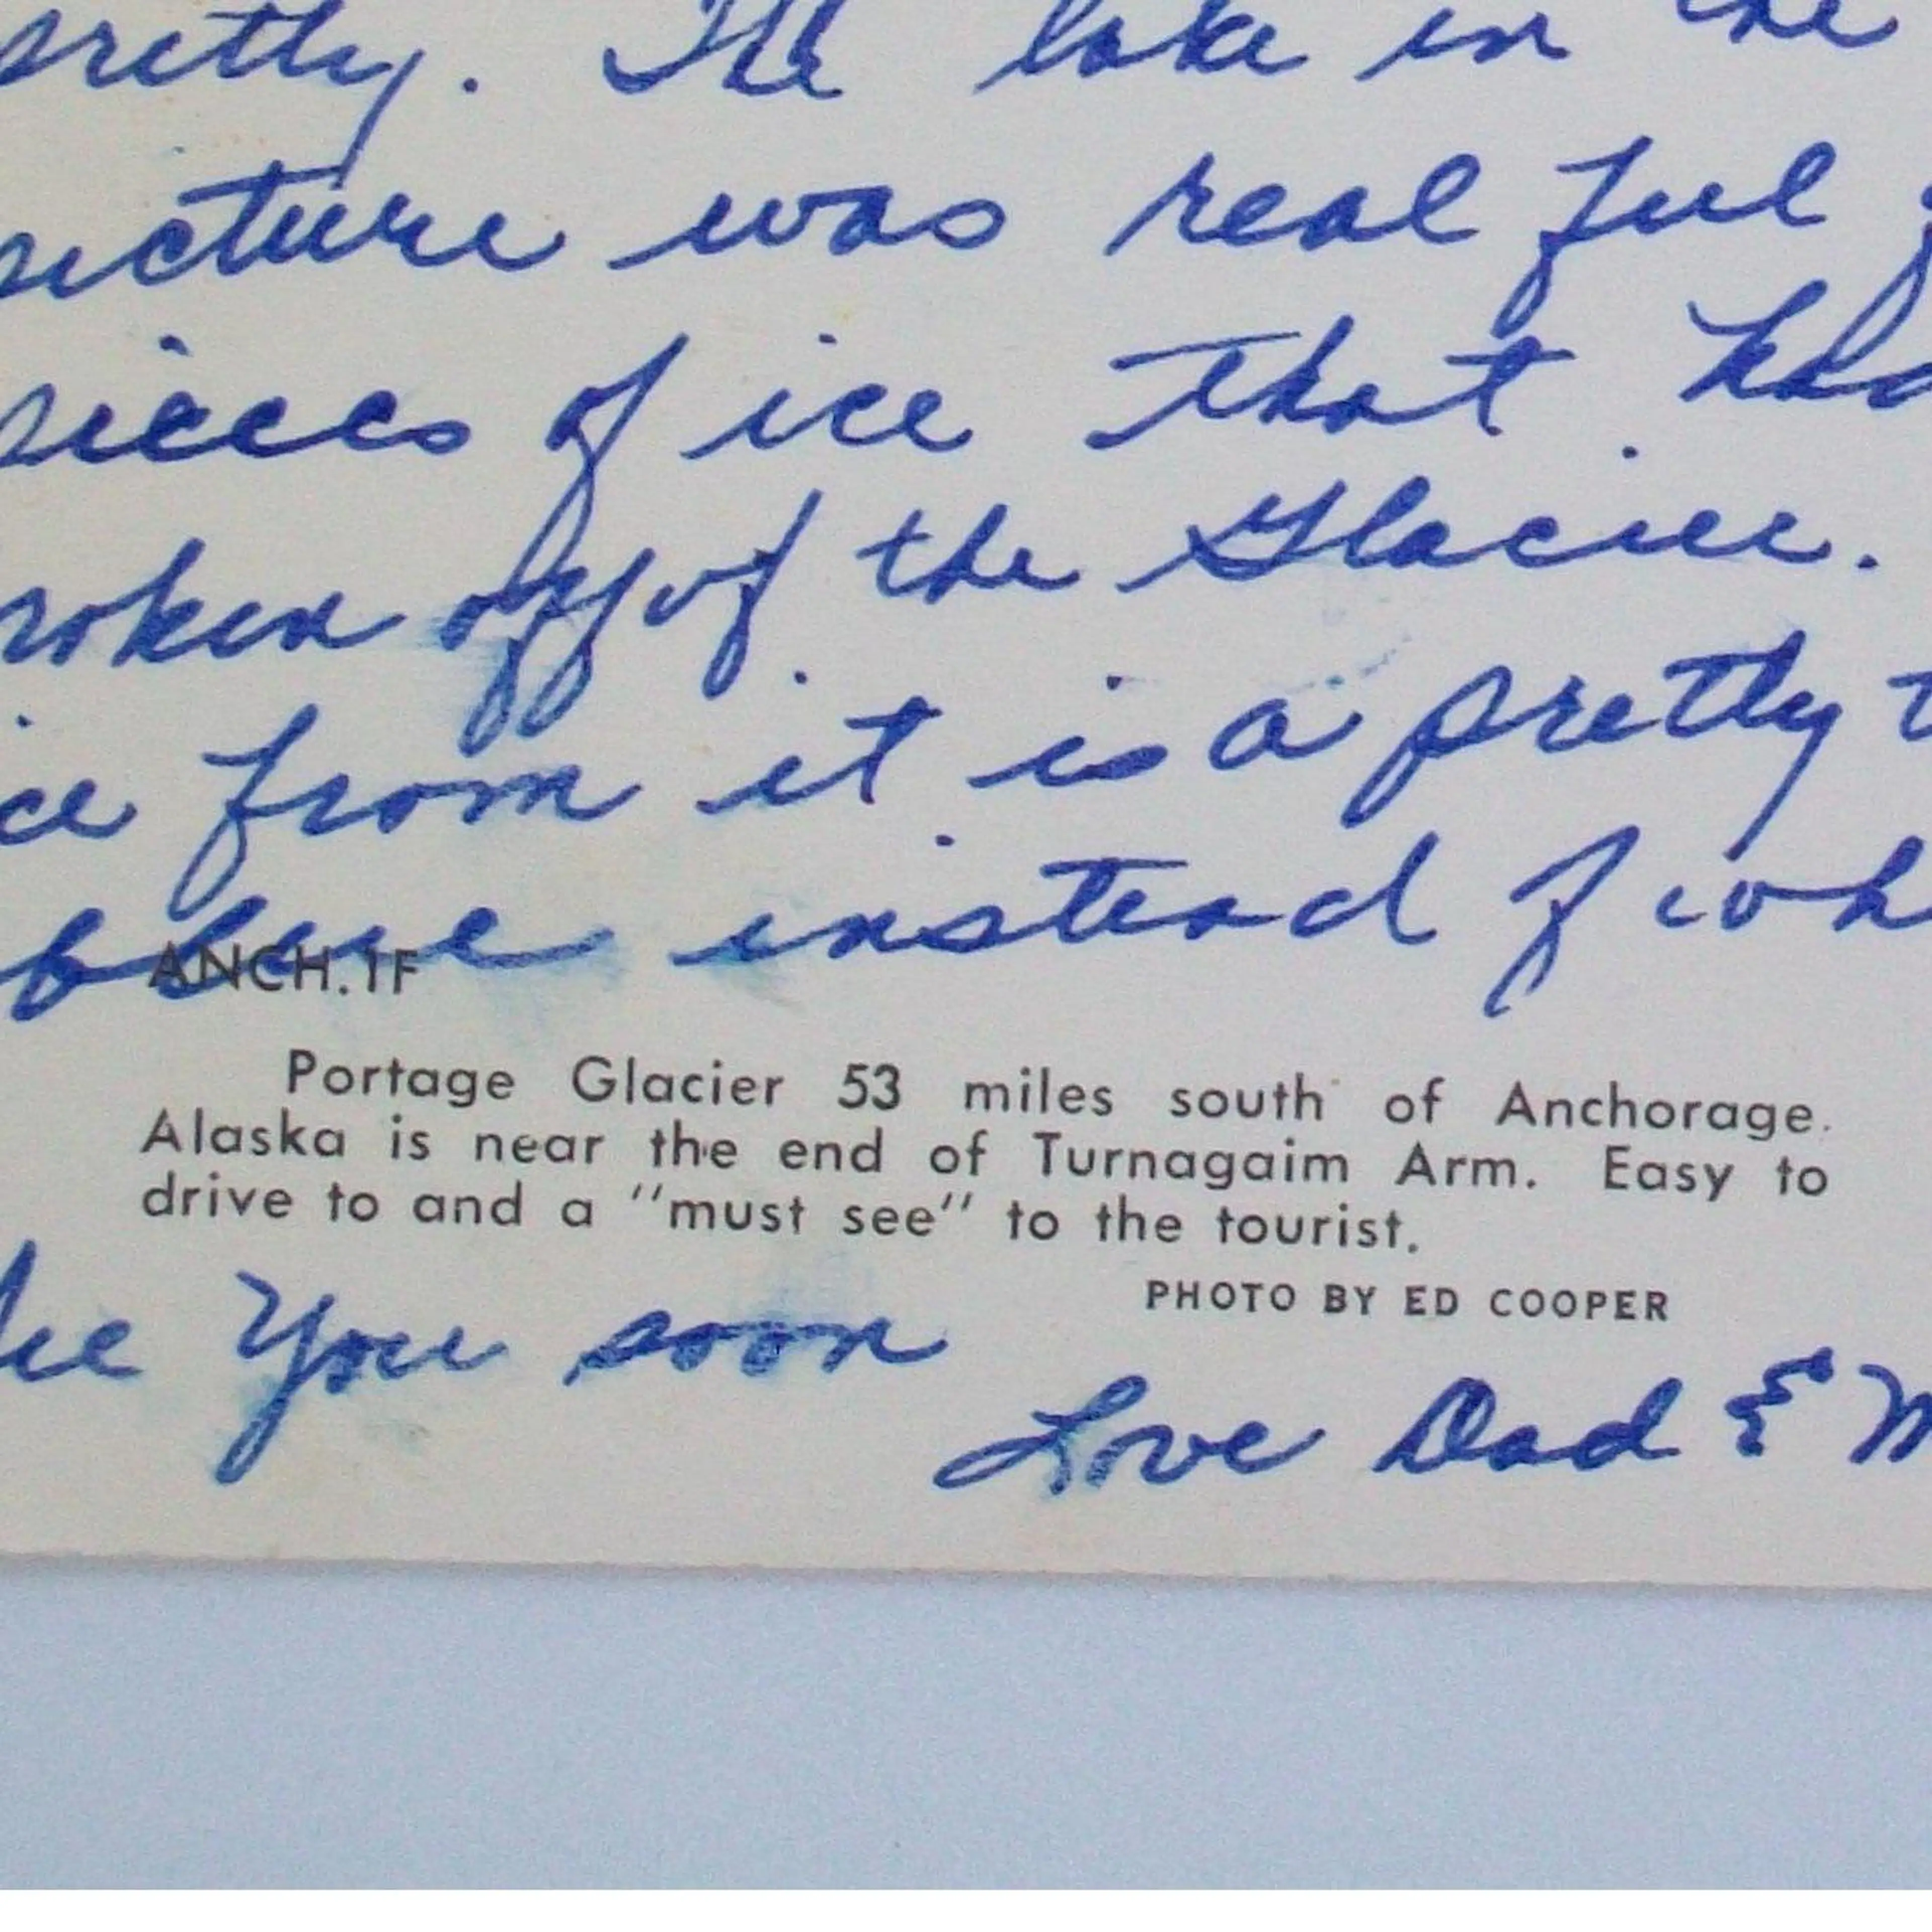 pretty. The lake in the
picture was real ful
pieces of ice that had
broken off of the Glacier.
ice from it is a pretty
blue instead of wh
ANCH.1F
Portage Glacier 53 miles south of Anchorage.
Alaska is near the end of Turnagaim Arm. Easy to
drive to and a "must see" to the tourist.
PHOTO BY ED COOPER
See You soon
Love Dad & M